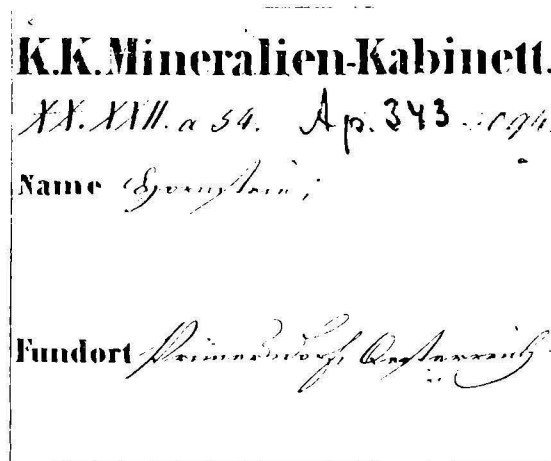 K.K.Mineralien-Kabinett.
XX. XXII. a 54. Ap. 343
Name Hornstein;
Fundort Primersdorf, Oesterreich